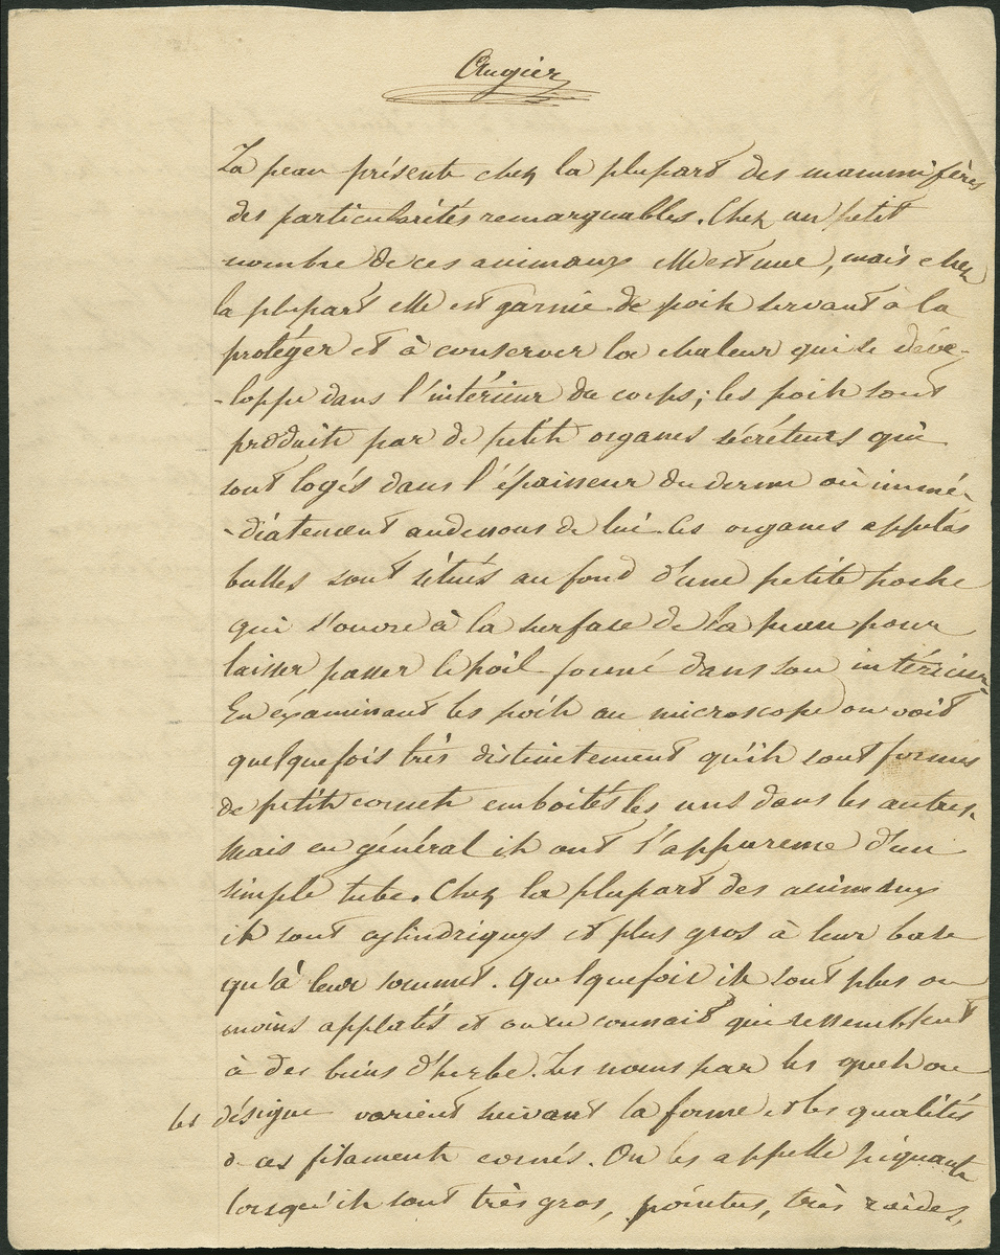 Augier
La peau présente chez la plupart des mammifères
des particularités remarquables. Chez un petit
nombre de ces animaux elle est nue, mais chez
la plupart elle est garnie de poils servant à la
protéger et à conserver la chaleur qui se déve-
-loppe dans l'intérieur du corps; les poils sont
produits par de petits organes sécréteurs qui
sont logés dans l'épaisseur du derme où immé-
-diatement au dessous de lui. Ces organes appelés
bulbes sont situés au fond d'une petite poche
qui s'ouvre à la surface de la peau pour
laisser passer le poil formé dans son intérieur.
En examinant les poils au microscope on voit
quelquefois très distinctement qu'ils sont formés
de petits cornets emboités les uns dans les autres.
Mais en général ils ont l'apparence d'un
simple tube. Chez la plupart des animaux
ils sont cylindriques et plus gros à leur base
qu'à leur sommet. Quelquefois ils sont plus ou
moins applatis et on en connait qui ressemblent
à des brins d'herbe. Les noms par les quels on
les désigne varient suivant la forme et les qualités
de ces filaments cornés. On les appelle piquants
lorsqu'ils sont très gros, pointus, très roides,